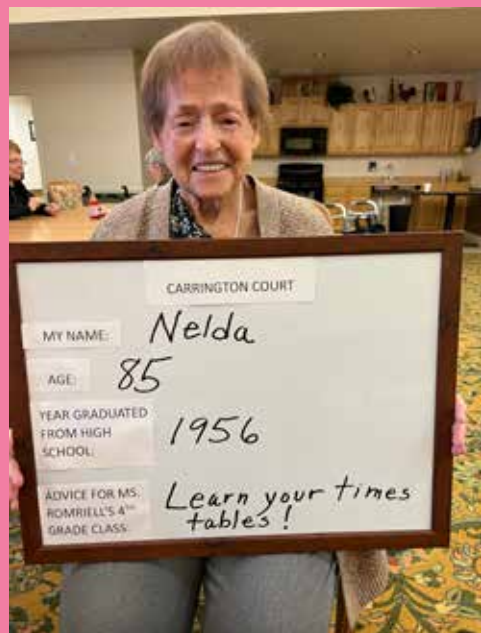 CARRINGTON COURT
MY NAME: Nelda
AGE: 85
YEAR GRADUATED
FROM HIGH
SCHOOL: 1956
ADVICE FOR MS.
ROMRIELL'S 4TH
GRADE CLASS:
Learn your times
tables!